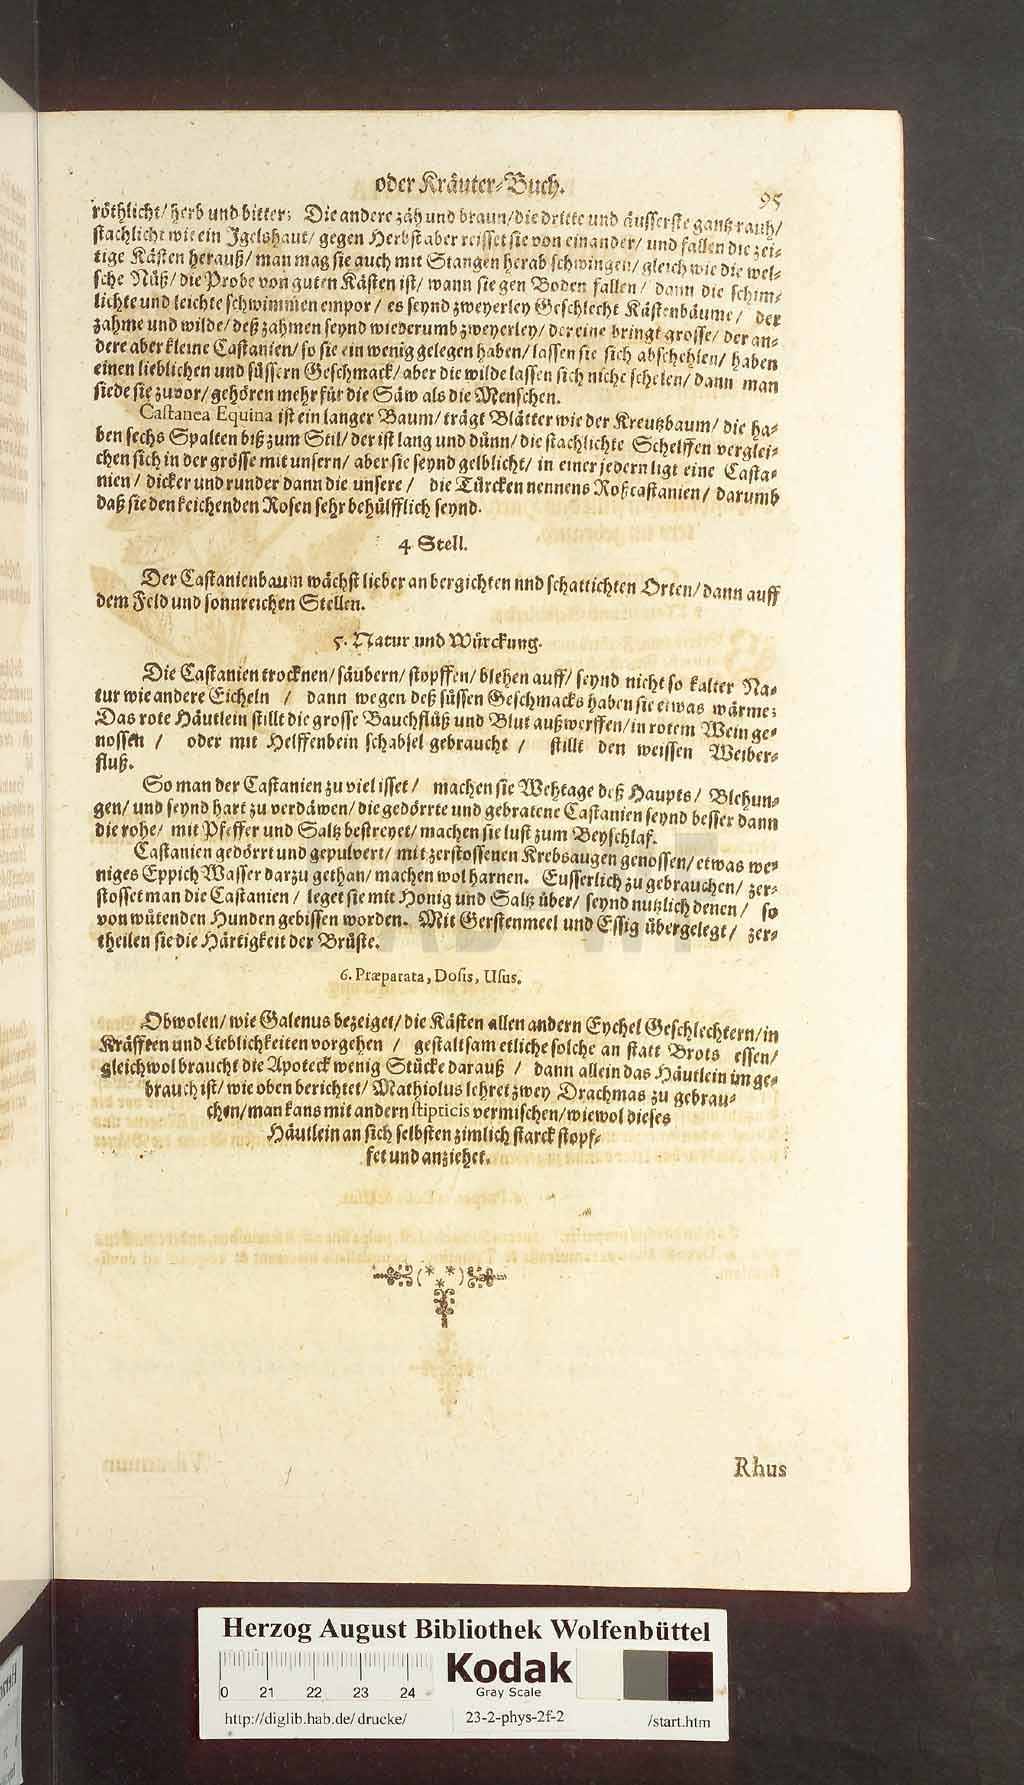 oder Kräuter-Buch.
95
röthlicht/ herb und bitter; Die andere zäh und braun/ die dritte und äusserste gantz rauh/
stachlicht wie ein Igelshaut/ gegen Herbst aber reisset sie von einander/ und fallen die zei-
tige Kästen herauß/ man mag sie auch mit Stangen herab schwingen/ gleich wie die wel-
sche Nüß/ die Probe von guten Kästen ist/ wann sie gen Boden fallen/ dann die schim-
lichte und leichte schwimmen empor/ es seynd zweyerley Geschlecht Kästenbäume/ der
zahme und wilde/ deß zahmen seynd wiederumb zweyerley/ der eine bringt grosse/ der an-
dere aber kleine Castanien/ so sie ein wenig gelegen haben/ lassen sie sich abschehlen/ haben
einen lieblichen und süssern Geschmack/ aber die wilde lassen sich niche schelen/ dann man
siede sie zuvor/ gehören mehr für die Säw als die Menschen.
Castanea Equina ist ein langer Baum/ trägt Blätter wie der Kreutzbaum/ die ha-
ben sechs Spalten biß zum Stil/ der ist lang und dünn/ die stachlichte Schelffen verglei-
chen sich in der grösse mit unsern/ aber sie seynd gelblicht/ in einer jedern ligt eine Casta-
nien/ dicker und runder dann die unsere/ die Türcken nennens Roßcastanien/ darumb
daß sie den keichenden Rosen sehr behülfflich seynd.
4 Stell.
Der Castanienbaum wächst lieber an bergichten nnd schattichten Orten/ dann auff
dem Feld und sonnreichen Stellen.
5. Natur und Würckung.
Die Castanien trocknen/ säubern/ stopffen/ blehen auff/ seynd nicht so kalter Na-
tur wie andere Eicheln / dann wegen deß süssen Geschmacks haben sie etwas wärme;
Das rote Häutlein stillt die grosse Bauchflüß und Blut außwerffen/ in rotem Wein ge-
nossen / oder mit Helffenbein schabsel gebraucht / stillt den weissen Weiber-
fluß.
So man der Castanien zu viel isset / machen sie Wehtage deß Haupts/ Blehun-
gen/ und seynd hart zu verdäwen/ die gedörrte und gebratene Castanien seynd besser dann
die rohe/ mit Pfeffer und Saltz bestreyet/ machen sie lust zum Beyschlaf.
Castanien gedörrt und gepulvert/ mit zerstossenen Krebsaugen genossen/ etwas we-
niges Eppich Wasser darzu gethan/ machen wol harnen. Eusserlich zu gebrauchen/ zer-
stosset man die Castanien/ leget sie mit Honig und Saltz über/ seynd nutzlich denen/ so
von wütenden Hunden gebissen worden. Mit Gerstenmeel und Essig übergelegt/ zer-
theilen sie die Härtigkeit der Brüste.
6. Præparata, Dosis, Usus.
Obwolen/ wie Galenus bezeiget/ die Kästen allen andern Eychel Geschlechtern/ in
Kräfften und Lieblichkeiten vorgehen / gestaltsam etliche solche an statt Brots essen/
gleichwol braucht die Apoteck wenig Stücke darauß / dann allein das Häutlein im ge-
brauch ist/ wie oben berichtet/ Mathiolus lehret zwey Drachmas zu gebrau-
chen/ man kans mit andern stipticis vermischen/ wiewol dieses
Häutlein an sich selbsten zimlich starck stopf-
fet und anziehet.
Rhus
Herzog August Bibliothek Wolfenbüttel
Kodak
Gray Scale
0 21 22 23 24
http://diglib.hab.de/drucke/ 23-2-phys-2f-2 /start.htm